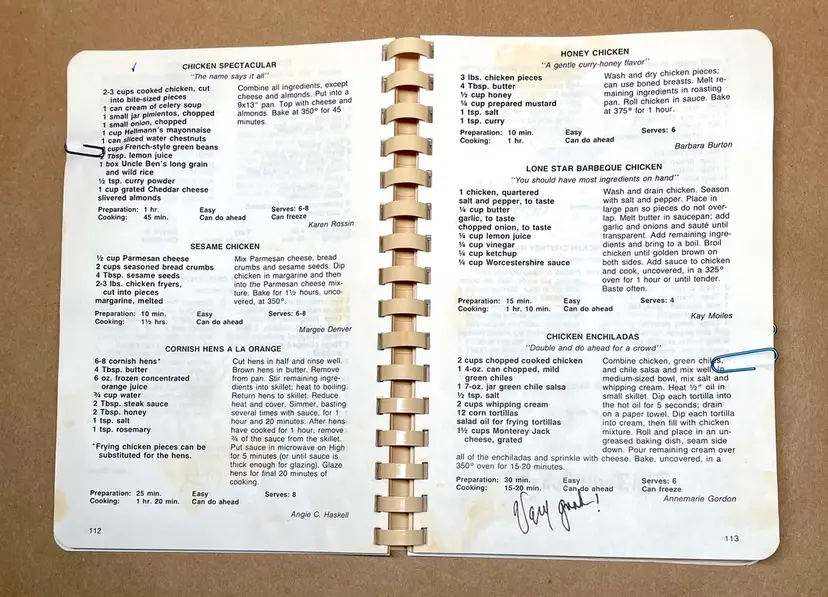 CHICKEN SPECTACULAR
"The name says it all"
2-3 cups cooked chicken, cut
into bite-sized pieces
1 can cream of celery soup
1 small jar pimientos, chopped
1 small onion, chopped
1 cup Hellmann's mayonnaise
1 can sliced water chestnuts
cups French-style green beans
Tbsp. lemon juice
1 box Uncle Ben's long grain
and wild rice
½ tsp. curry powder
1 cup grated Cheddar cheese
slivered almonds
Combine all ingredients, except
cheese and almonds. Put into a
9x13" pan. Top with cheese and
almonds. Bake at 350° for 45
minutes.
Preparation: 1 hr. Easy Serves: 6-8
Cooking: 45 min. Can do ahead Can freeze
Karen Rossin
SESAME CHICKEN
½ cup Parmesan cheese
2 cups seasoned bread crumbs
4 Tbsp. sesame seeds
2-3 lbs. chicken fryers,
cut into pieces
margarine, melted
Mix Parmesan cheese, bread
crumbs and sesame seeds. Dip
chicken in margarine and then
into the Parmesan cheese mix-
ture. Bake for 1½ hours, unco-
vered, at 350°.
Preparation: 10 min. Easy Serves: 6-8
Cooking: 1½ hrs. Can do ahead
Margee Denver
CORNISH HENS A LA ORANGE
6-8 cornish hens*
4 Tbsp. butter
6 oz. frozen concentrated
orange juice
¾ cup water
2 Tbsp. steak sauce
2 Tbsp. honey
1 tsp. salt
1 tsp. rosemary
*Frying chicken pieces can be
substituted for the hens.
Cut hens in half and rinse well.
Brown hens in butter. Remove
from pan. Stir remaining ingre-
dients into skillet; heat to boiling.
Return hens to skillet. Reduce
heat and cover. Simmer, basting
several times with sauce, for 1
hour and 20 minutes. After hens
have cooked for 1 hour, remove
¾ of the sauce from the skillet.
Put sauce in microwave on High
for 5 minutes (or until sauce is
thick enough for glazing). Glaze
hens for final 20 minutes of
cooking.
Preparation: 25 min. Easy Serves: 8
Cooking: 1 hr. 20 min. Can do ahead
Angie C. Haskell
112
HONEY CHICKEN
"A gentle curry-honey flavor"
3 lbs. chicken pieces
4 Tbsp. butter
½ cup honey
¼ cup prepared mustard
1 tsp. salt
1 tsp. curry
Wash and dry chicken pieces;
can use boned breasts. Melt re-
maining ingredients in roasting
pan. Roll chicken in sauce. Bake
at 375° for 1 hour.
Preparation: 10 min. Easy Serves: 6
Cooking: 1 hr. Can do ahead
Barbara Burton
LONE STAR BARBEQUE CHICKEN
"You should have most ingredients on hand"
1 chicken, quartered
salt and pepper, to taste
¼ cup butter
garlic, to taste
chopped onion, to taste
¼ cup lemon juice
¼ cup vinegar
¼ cup ketchup
¼ cup Worcestershire sauce
Wash and drain chicken. Season
with salt and pepper. Place in
large pan so pieces do not over-
lap. Melt butter in saucepan; add
garlic and onions and sauté until
transparent. Add remaining ingre-
dients and bring to a boil. Broil
chicken until golden brown on
both sides. Add sauce to chicken
and cook, uncovered, in a 325°
oven for 1 hour or until tender.
Baste often.
Preparation: 15 min. Easy Serves: 4
Cooking: 1 hr. 10 min. Can do ahead
Kay Moiles
CHICKEN ENCHILADAS
"Double and do ahead for a crowd"
2 cups chopped cooked chicken
1 4-oz. can chopped, mild
green chiles
1 7-oz. jar green chile salsa
½ tsp. salt
2 cups whipping cream
12 corn tortillas
salad oil for frying tortillas
1½ cups Monterey Jack
cheese, grated
Combine chicken, green chiles,
and chile salsa and mix well. In
medium-sized bowl, mix salt and
whipping cream. Heat ½" oil in
small skillet. Dip each tortilla into
the hot oil for 5 seconds; drain
on a paper towel. Dip each tortilla
into cream, then fill with chicken
mixture. Roll and place in an un-
greased baking dish, seam side
down. Pour remaining cream over
all of the enchiladas and sprinkle with cheese. Bake, uncovered, in a
350° oven for 15-20 minutes.
Preparation: 30 min. Easy Serves: 6
Cooking: 15-20 min. Can do ahead Can freeze
Annemarie Gordon
Very good!
113